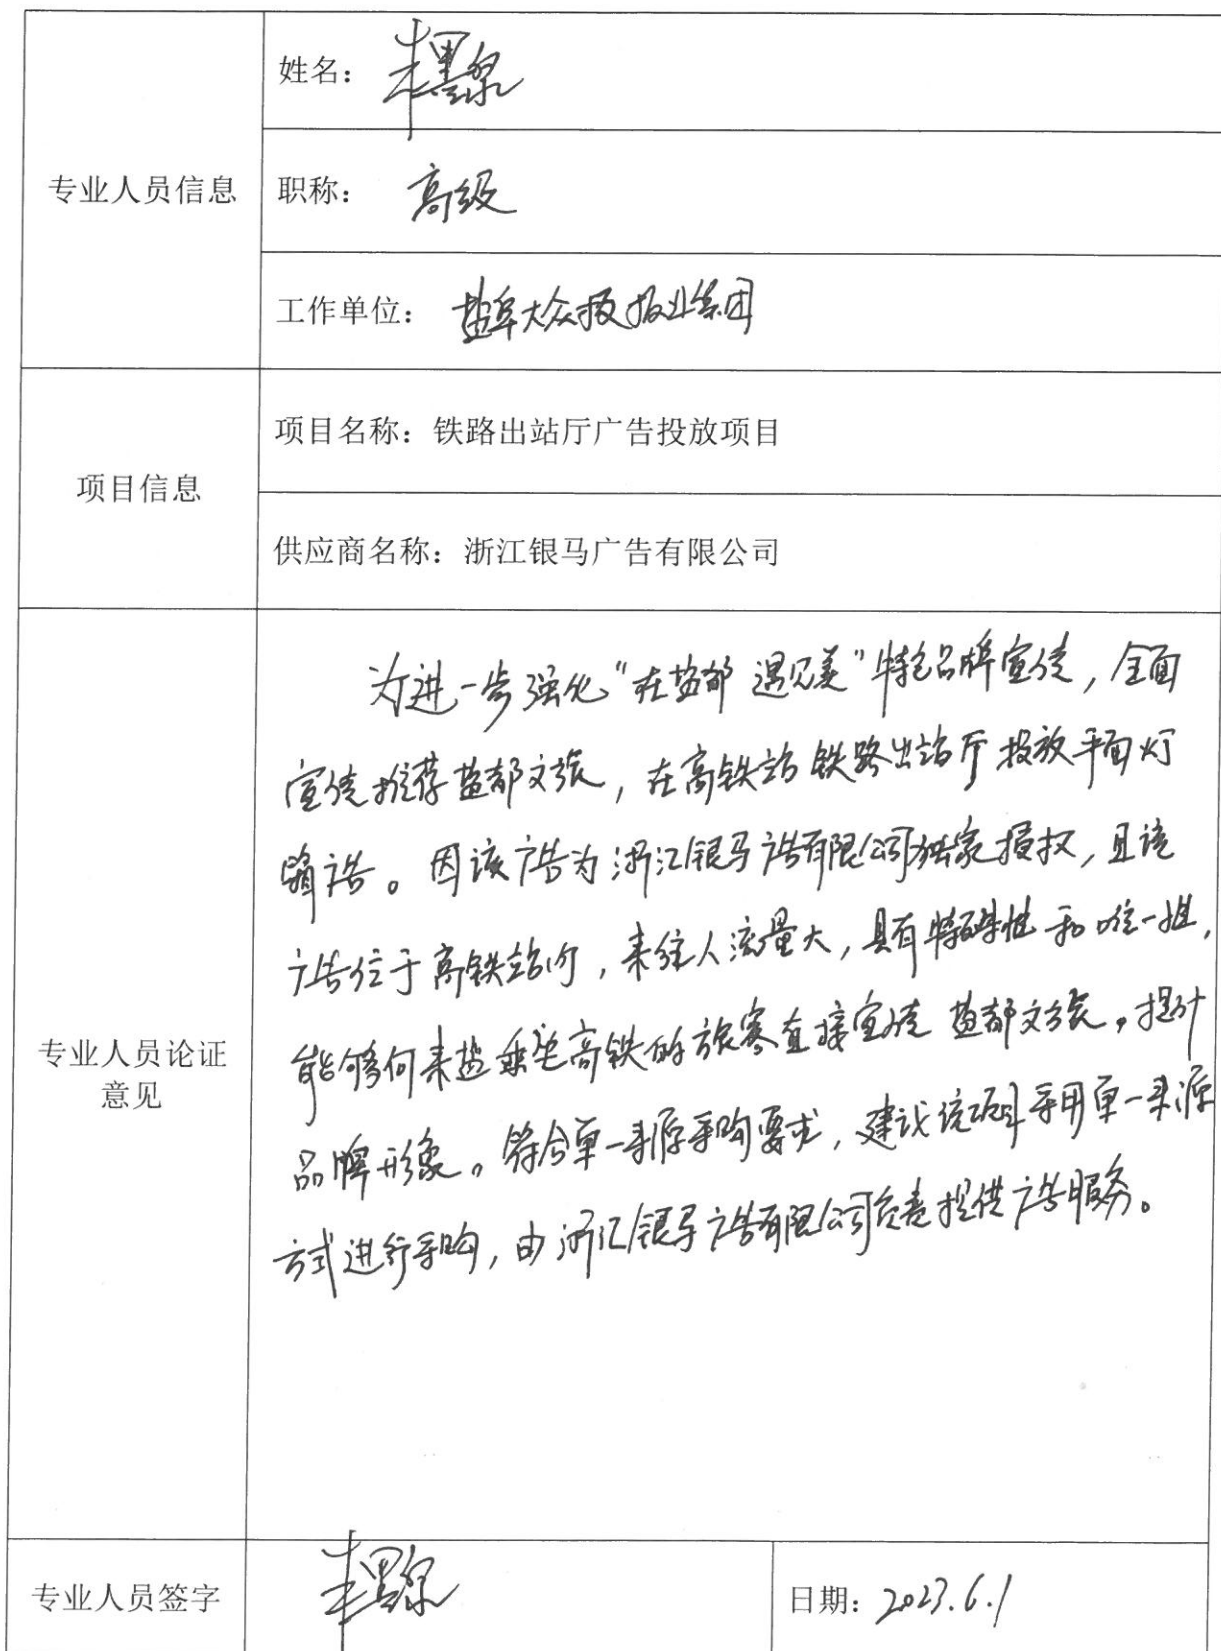 姓名：
专业人员信息
职称：高级
工作单位：盐阜大众报报业集团
项目信息
项目名称：铁路出站厅广告投放项目
供应商名称：浙江银马广告有限公司
专业人员论证
意见
为进一步强化“在盐都 遇见美”特色品牌宣传，全面
宣传推荐盐都文旅，在高铁站铁路出站厅投放平面灯
箱广告。因该广告为浙江银马广告有限公司独家授权，且该
广告位于高铁站内，来往人流量大，具有特殊性和唯一性，
能够向来盐乘坐高铁的旅客直接宣传盐都文旅，提升
品牌形象。符合单一来源采购要求，建议该项目采用单一来源
方式进行采购，由浙江银马广告有限公司负责提供广告服务。
专业人员签字
日期：2023.6.1